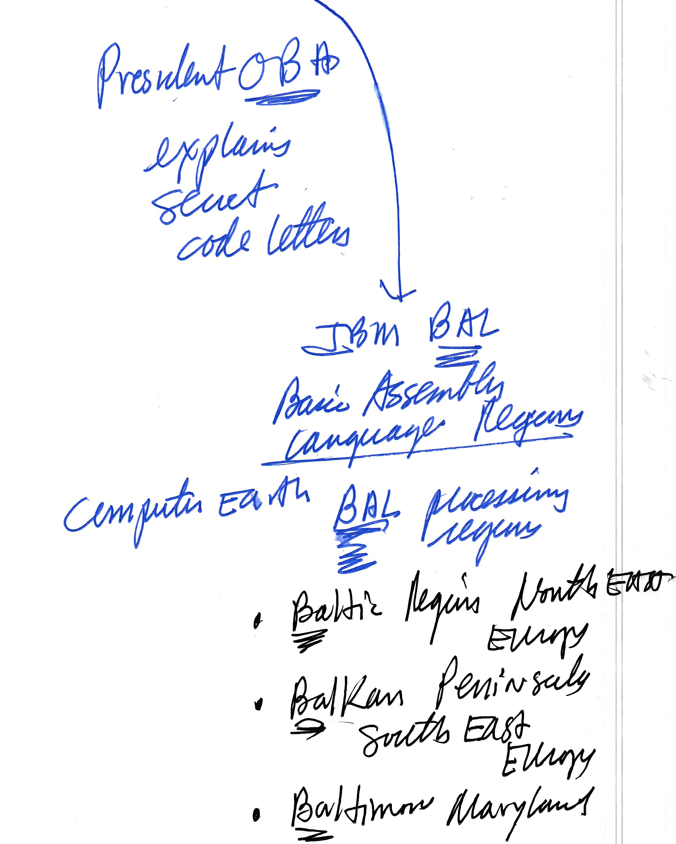 President OBA
explains
secret
code letters
IBM BAL
Basic Assembly
Language Regions
Computer Earth BAL processing
regions
• Baltic Regions North East
Europe
• Balkan Peninsula
South East
Europe
• Baltimore Maryland